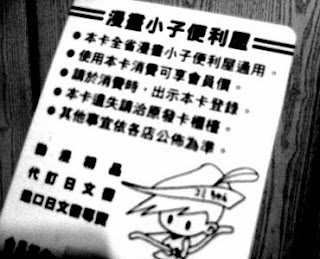 漫畫小子便利屋
●本卡全省漫畫小子便利屋通用。
●使用本卡消費可享會員價。
●請於消費時,出示本卡登錄。
●本卡遺失請洽原發卡櫃檯。
●其他事宜依各店公佈為準。
動漫精品
代訂日文書
進口日文書專賣